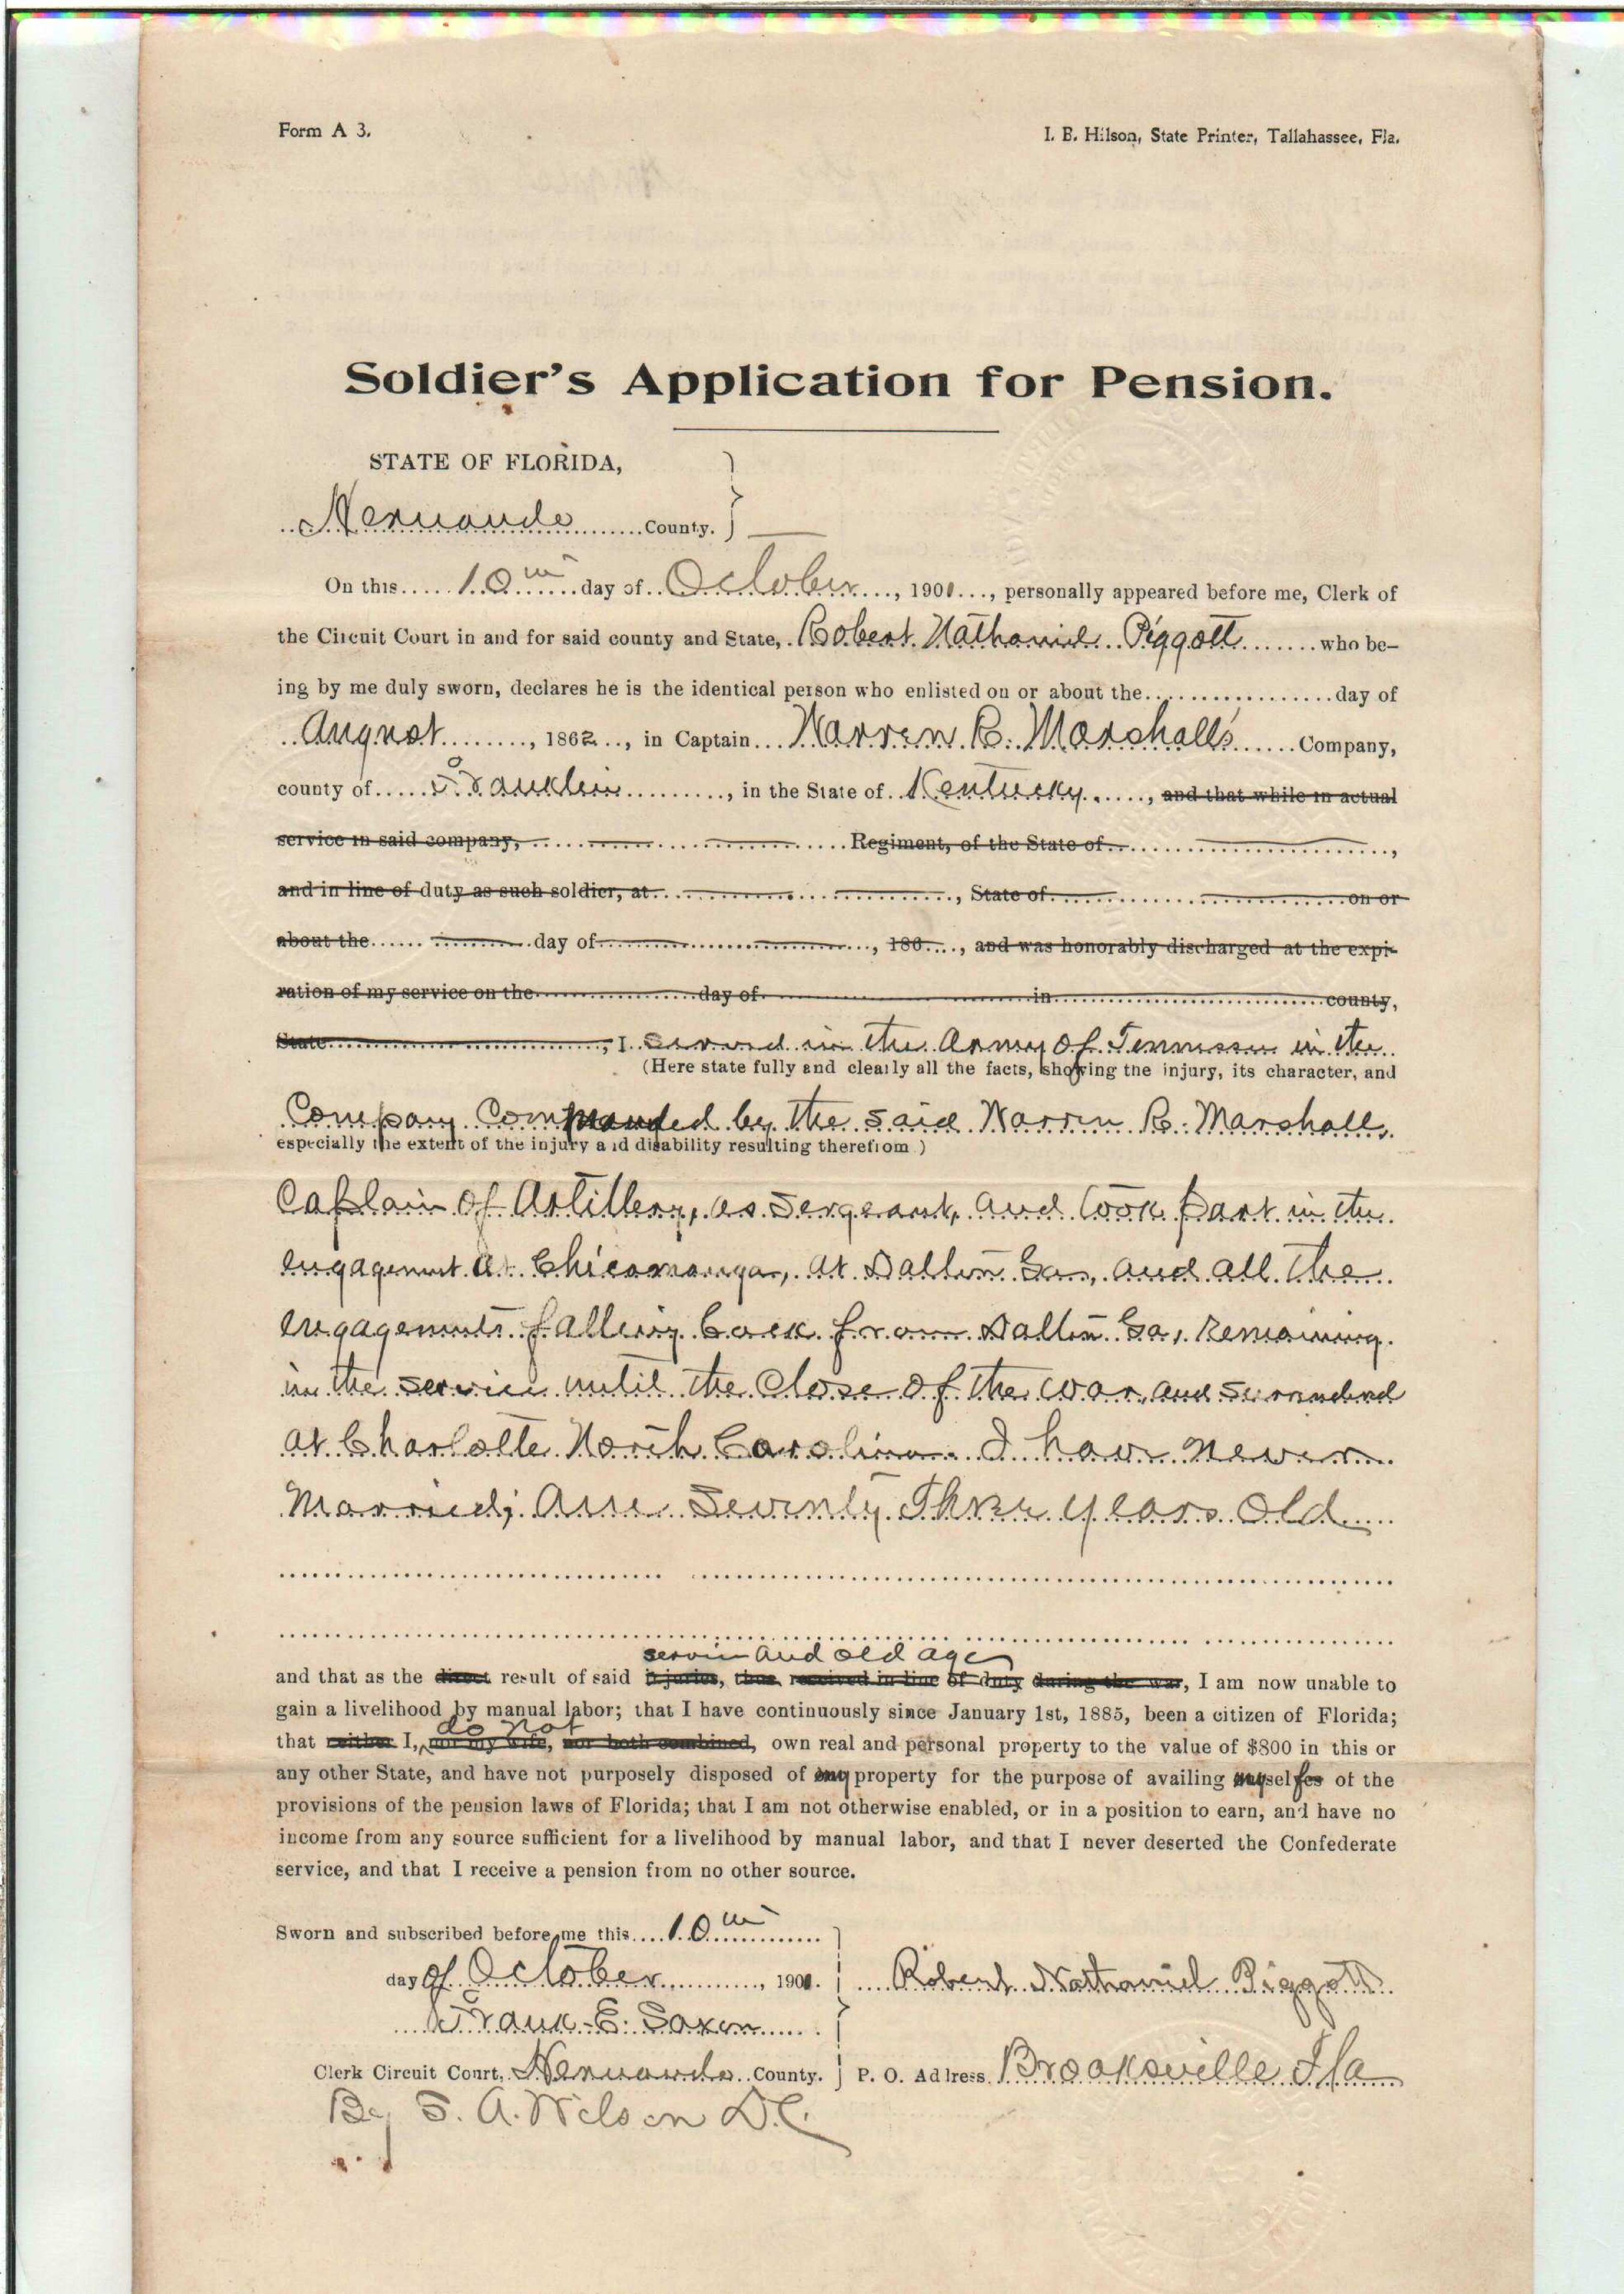 Form A 3.
I. B. Hilson, State Printer, Tallahassee, Fla.
Soldier's Application for Pension.
STATE OF FLORIDA,
Hernando County.
On this 10th day of October, 1901, personally appeared before me, Clerk of
the Circuit Court in and for said county and State, Robert Nathaniel Piggott who be-
ing by me duly sworn, declares he is the identical person who enlisted on or about the ................. day of
August, 1862, in Captain Warren R. Marshall's Company,
county of Franklin, in the State of Kentucky, and that while in actual
service in said company, ................. Regiment, of the State of .................,
and in line of duty as such soldier, at ................., State of ................. on or
about the ................. day of ................., 186...., and was honorably discharged at the expi-
ration of my service on the ................. day of ................. in ................. county,
State ................., I served in the Army of Tennessee in the
(Here state fully and clearly all the facts, showing the injury, its character, and
Company Commanded by the said Warren R. Marshall,
especially the extent of the injury and disability resulting therefrom)
Captain of Artillery, as Sergeant, and took part in the
engagement at Chicamauga, at Dalton Ga, and all the
engagements falling back from Dalton Ga, Remaining
in the service until the Close of the war, and surrendered
at Charlotte North Carolina. I have never
Married; Am Seventy Three years old
service and old age
and that as the direct result of said injuries, thus received in line of duty during the war, I am now unable to
gain a livelihood by manual labor; that I have continuously since January 1st, 1885, been a citizen of Florida;
do not
that neither I, nor my wife, nor both combined, own real and personal property to the value of $800 in this or
any other State, and have not purposely disposed of any property for the purpose of availing myself of the
provisions of the pension laws of Florida; that I am not otherwise enabled, or in a position to earn, and have no
income from any source sufficient for a livelihood by manual labor, and that I never deserted the Confederate
service, and that I receive a pension from no other source.
Sworn and subscribed before me this 10th
day of October, 1901.
Robert Nathaniel Piggott
Frank E. Saxon
Clerk Circuit Court, Hernando County.
P. O. Adress Brooksville Fla
By S. A. Wilson D.C.